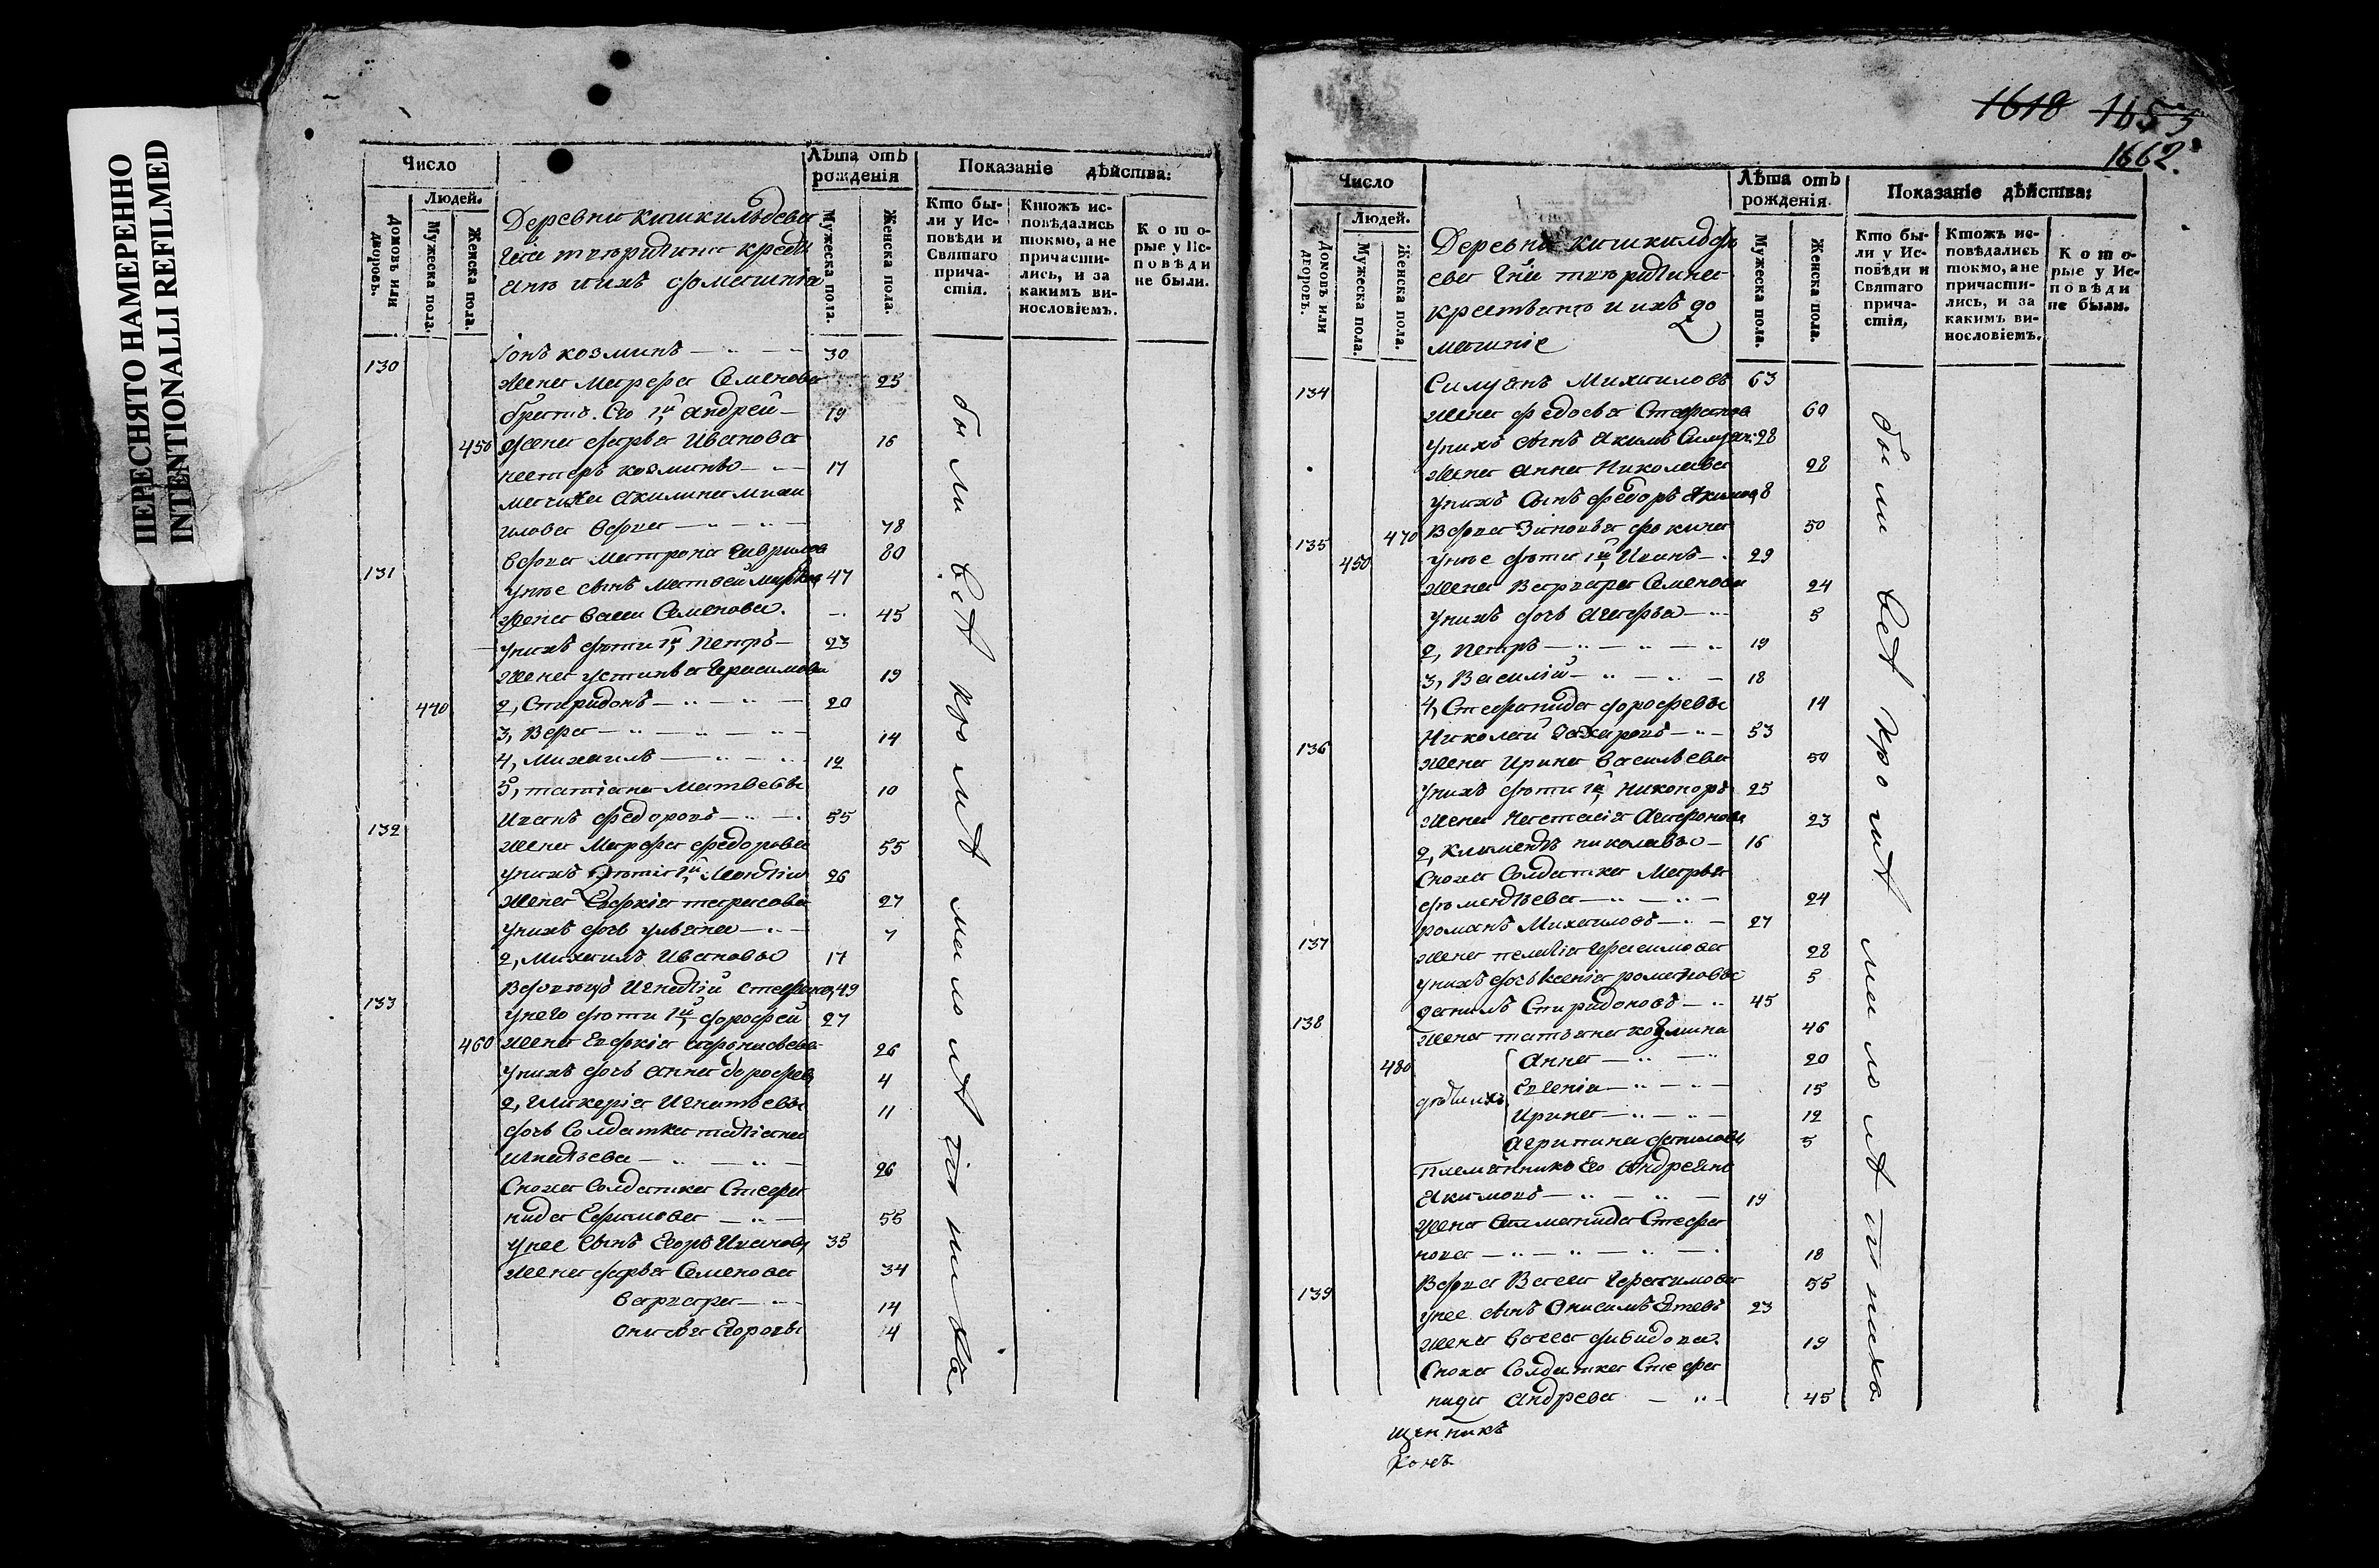 ПЕРЕСНЯТО НАМЕРЕННО
INTENTIONALLI REFILMED
Число
Людей.
Домовъ или дворовъ.
Мужеска пола.
Женска пола.
Деревни
крестя
анъ и ихъ домашнія
Лѣта отъ рожденія
Мужеска пола.
Женска пола.
Показаніе дѣйства:
Кто бы-
ли у Ис-
повѣди и
Святаго
прича-
стія.
Ктожъ ис-
повѣдались
токмо, а не
причасти-
лись, и за
какимъ ви-
нословіемъ.
Кото-
рые у Ис-
повѣди
не были.
130 Іонъ Козминъ 30
Жена Марфа Семенова 25
братъ Его 1й Андрей 19
450 Жена Дарья Иванова 16
Нестеръ Козминъ 17
Мачиха Акилина Михаи
илова вдова 78
131 Вдова Матрона Гаврилова 80
У нее сынъ Матвей 47
Жена Васса Семенова 45
У нихъ дѣти 1й Петръ 23
Жена Устинья Герасимова 19
440 2, Спиридонъ 20
3, Вера 14
4, Михаилъ 12
5, Татіана Матвѣевы 10
132 Иванъ Федоровъ 55
Жена Марфа Федорова 55
У нихъ дѣти 1й 26
Жена Евдокія Тарасова 27
У нихъ дочь Ульяна 7
2, Михаилъ Ивановы 17
133 Вдовецъ Игнатій Стефано, 49
У него дѣти 1й Дорофей 27
460 Жена Евдокія Афонасьева 26
У нихъ дочь Анна Дорофев, 4
2, Гликерія Игнатьевы 11
дочь Солдатка Татіана
Игнатьева 26
Сноха Солдатка Стефа
нида Ефимова 55
У нее Сынъ Егоръ Иванов, 35
Жена Дарья Семенова 34
Варвара 14
Анисья Егоровы 4
были всѣ кромѣ малолѣтнихъ
1618 1653
1662.
Число
Людей.
Домовъ или дворовъ.
Мужеска пола.
Женска пола.
Деревни
крестьянъ и ихъ до
машніе
Лѣта отъ рожденія.
Мужеска пола.
Женска пола.
Показаніе дѣйства:
Кто бы-
ли у Ис-
повѣди и
Святаго
прича-
стія,
Ктожъ ис-
повѣдались
токмо, а не
причасти-
лись, и за
какимъ ви-
нословіемъ.
Кото-
рые у Ис-
повѣди
не были.
134 Силуянъ Михаиловъ 63
Жена Федосья Стефанова 60
У нихъ сынъ Якимъ Силуян: 28
Жена Анна Николаева 28
У нихъ Сынъ Федоръ Якимов, 8
135 470 Вдова Зиновья Фокина 50
450 У нее дѣти 1й, Иванъ 29
Жена Варвара Семенова 24
У нихъ дочь Агафья 5
2, Петръ 19
3, Василій 18
4, Стефанида Дорофевы 14
136 Николай Захаровъ 53
Жена Ирина Васильева 50
У нихъ дѣти 1й, Никоноръ 25
Жена Настасія Агафонова 23
2, Климентъ Николаевы 16
Сноха Солдатка Марья
Дементьева 24
137 Романъ Михаиловъ 27
Жена Пелагія Герасимова 28
У нихъ дочь Ксенія Романова 5
138 Данилъ Спиридоновъ 45
Жена Татьяна Козмина 46
480 Анна 20
дѣти ихъ Евгенія 15
Ирина 12
Агрипина Данилова, 5
Племянникъ Его Андреянъ
Якимовъ 19
Жена Стефа
нова 18
139 Вдова Васса Герасимова 55
У нее сынъ Онисимъ 23
Жена Васса Давидова. 19
Сноха Солдатка Стефа
нида Андрева 45
были всѣ кромѣ малолѣтнихъ
щенникъ